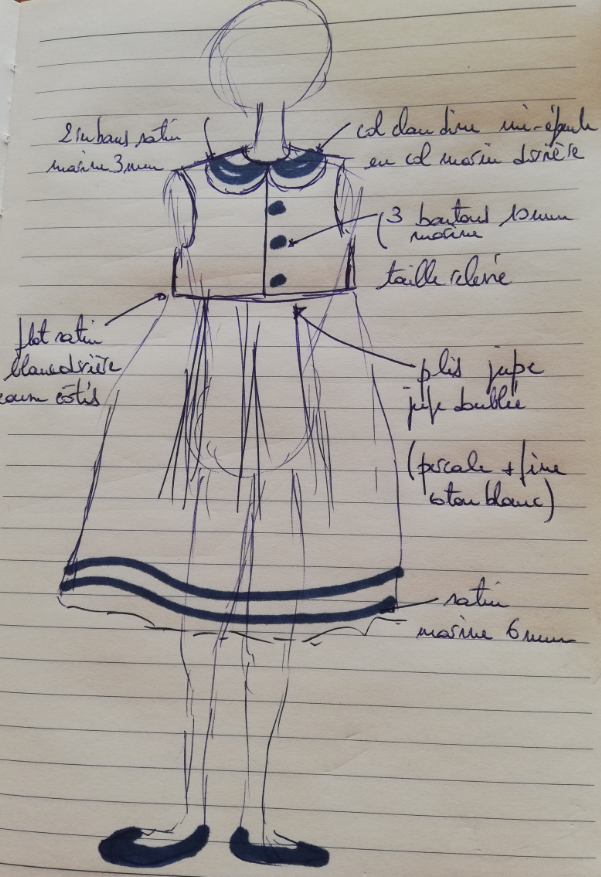 2 rubans satin
marine 3 mm
col claudine mi-épaule
en col marin derrière
3 boutons 10 mm
marine
taille relevée
flot satin
blanc derrière
couru côtés
plis jupe
jupe doublée
(percale + fine
coton blanc)
satin
marine 6 mm